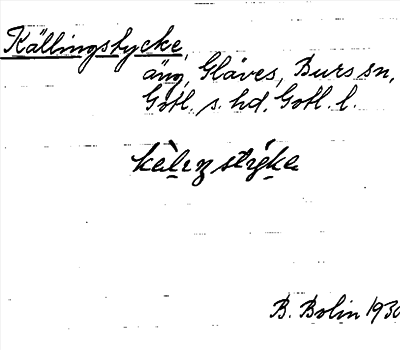 Källingstycke,
äng, Gläves, Burs sn,
Gotl. s. hd, Gotl. l.
B. Bolin 1930